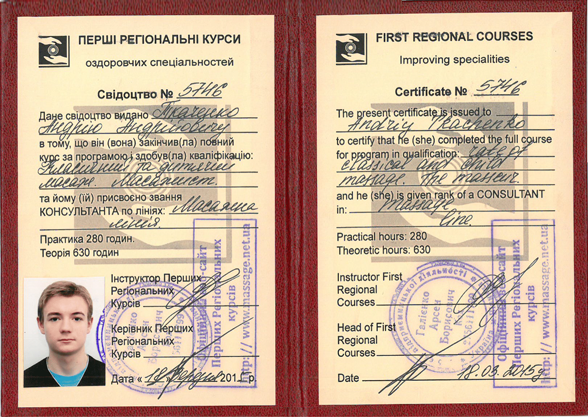 ПЕРШІ РЕГІОНАЛЬНІ КУРСИ
оздоровчих спеціальностей
Свідоцтво № 5746
Дане свідоцтво видано Ткаченко
Андрію Андрійовичу
в тому, що він (вона) закінчив(ла) повний
курс за програмою і здобув(ла) кваліфікацію:
Класичний та дитячий
масаж. Масажист.
та йому (їй) присвоєно звання
КОНСУЛЬТАНТА по лініях: Масажна
лінія.
Практика 280 годин.
Теорія 630 годин
Інструктор Перших
Регіональних
Курсів
Керівник Перших
Регіональних
Курсів
Дата « 18 » березня 201 р.
Офіційний веб-сайт
Перших Регіональних
курсів
http://www.massage.net.ua
FIRST REGIONAL COURSES
Improving specialities
Certificate № 5746
The present certificate is issued to
Andriy Tkachenko
to certify that he (she) completed the full course
for program in qualification:
classical and child
massage. The masseur
and he (she) is given rank of a CONSULTANT
in: Massage
line.
Practical hours: 280
Theoretic hours: 630
Instructor First
Regional
Courses
Head of First
Regional
Courses
Date 18.03.2015
Галієнко
Арсен
Борисович
Офіційний веб-сайт
Перших Регіональних
курсів
http://www.massage.net.ua